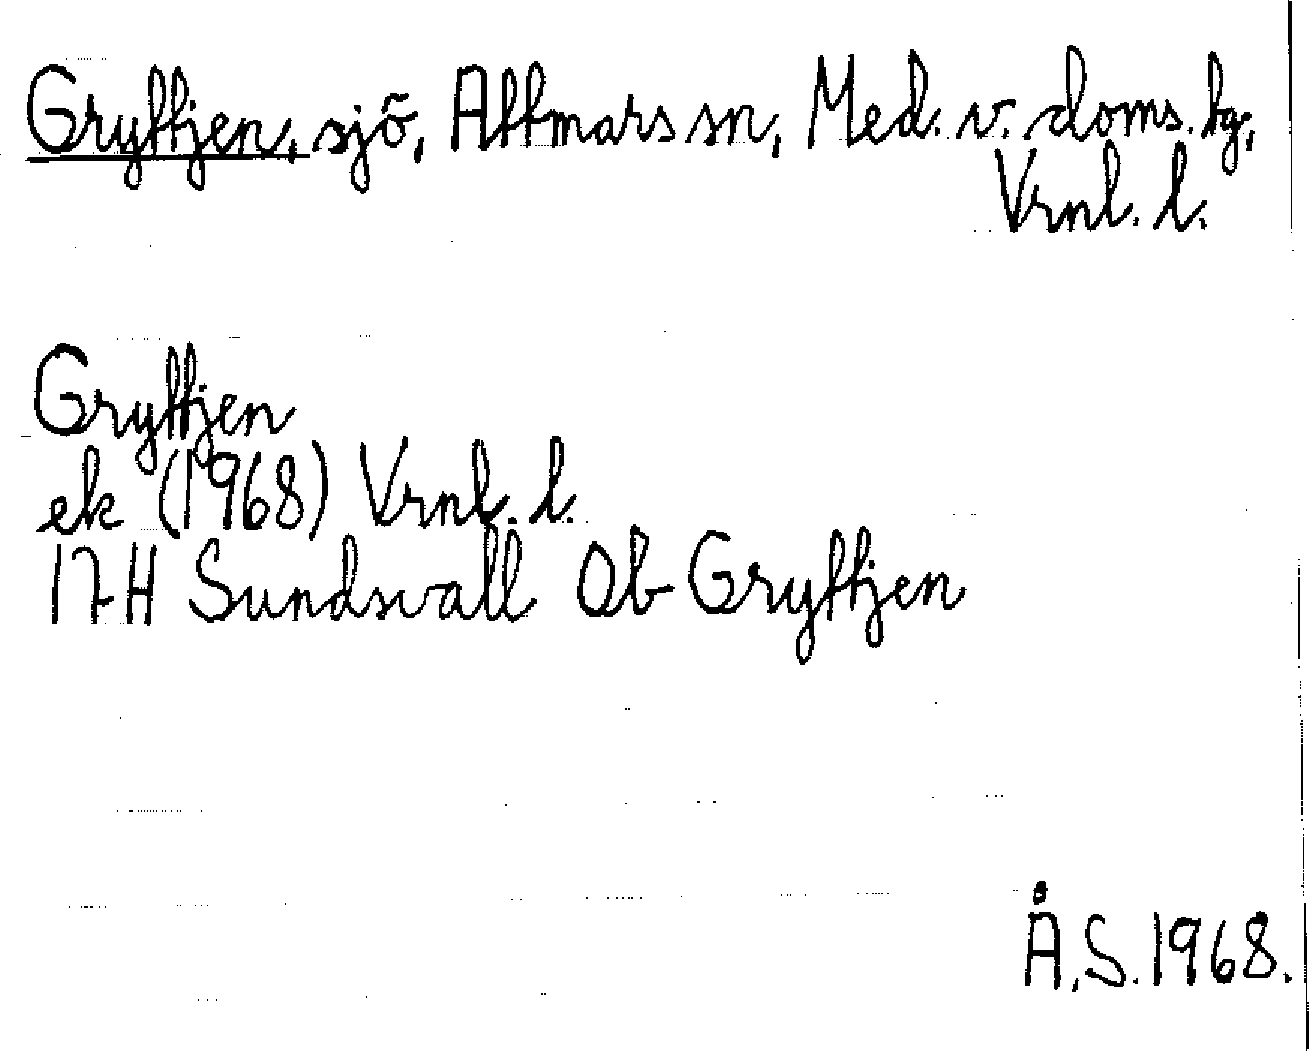 Gryttjen, sjö, Attmars sn, Med. v. doms. tg,
Vrnl. l.
Gryttjen
ek (1968) Vrnl. l.
17H Sundsvall Ob Gryttjen
Å.S. 1968.